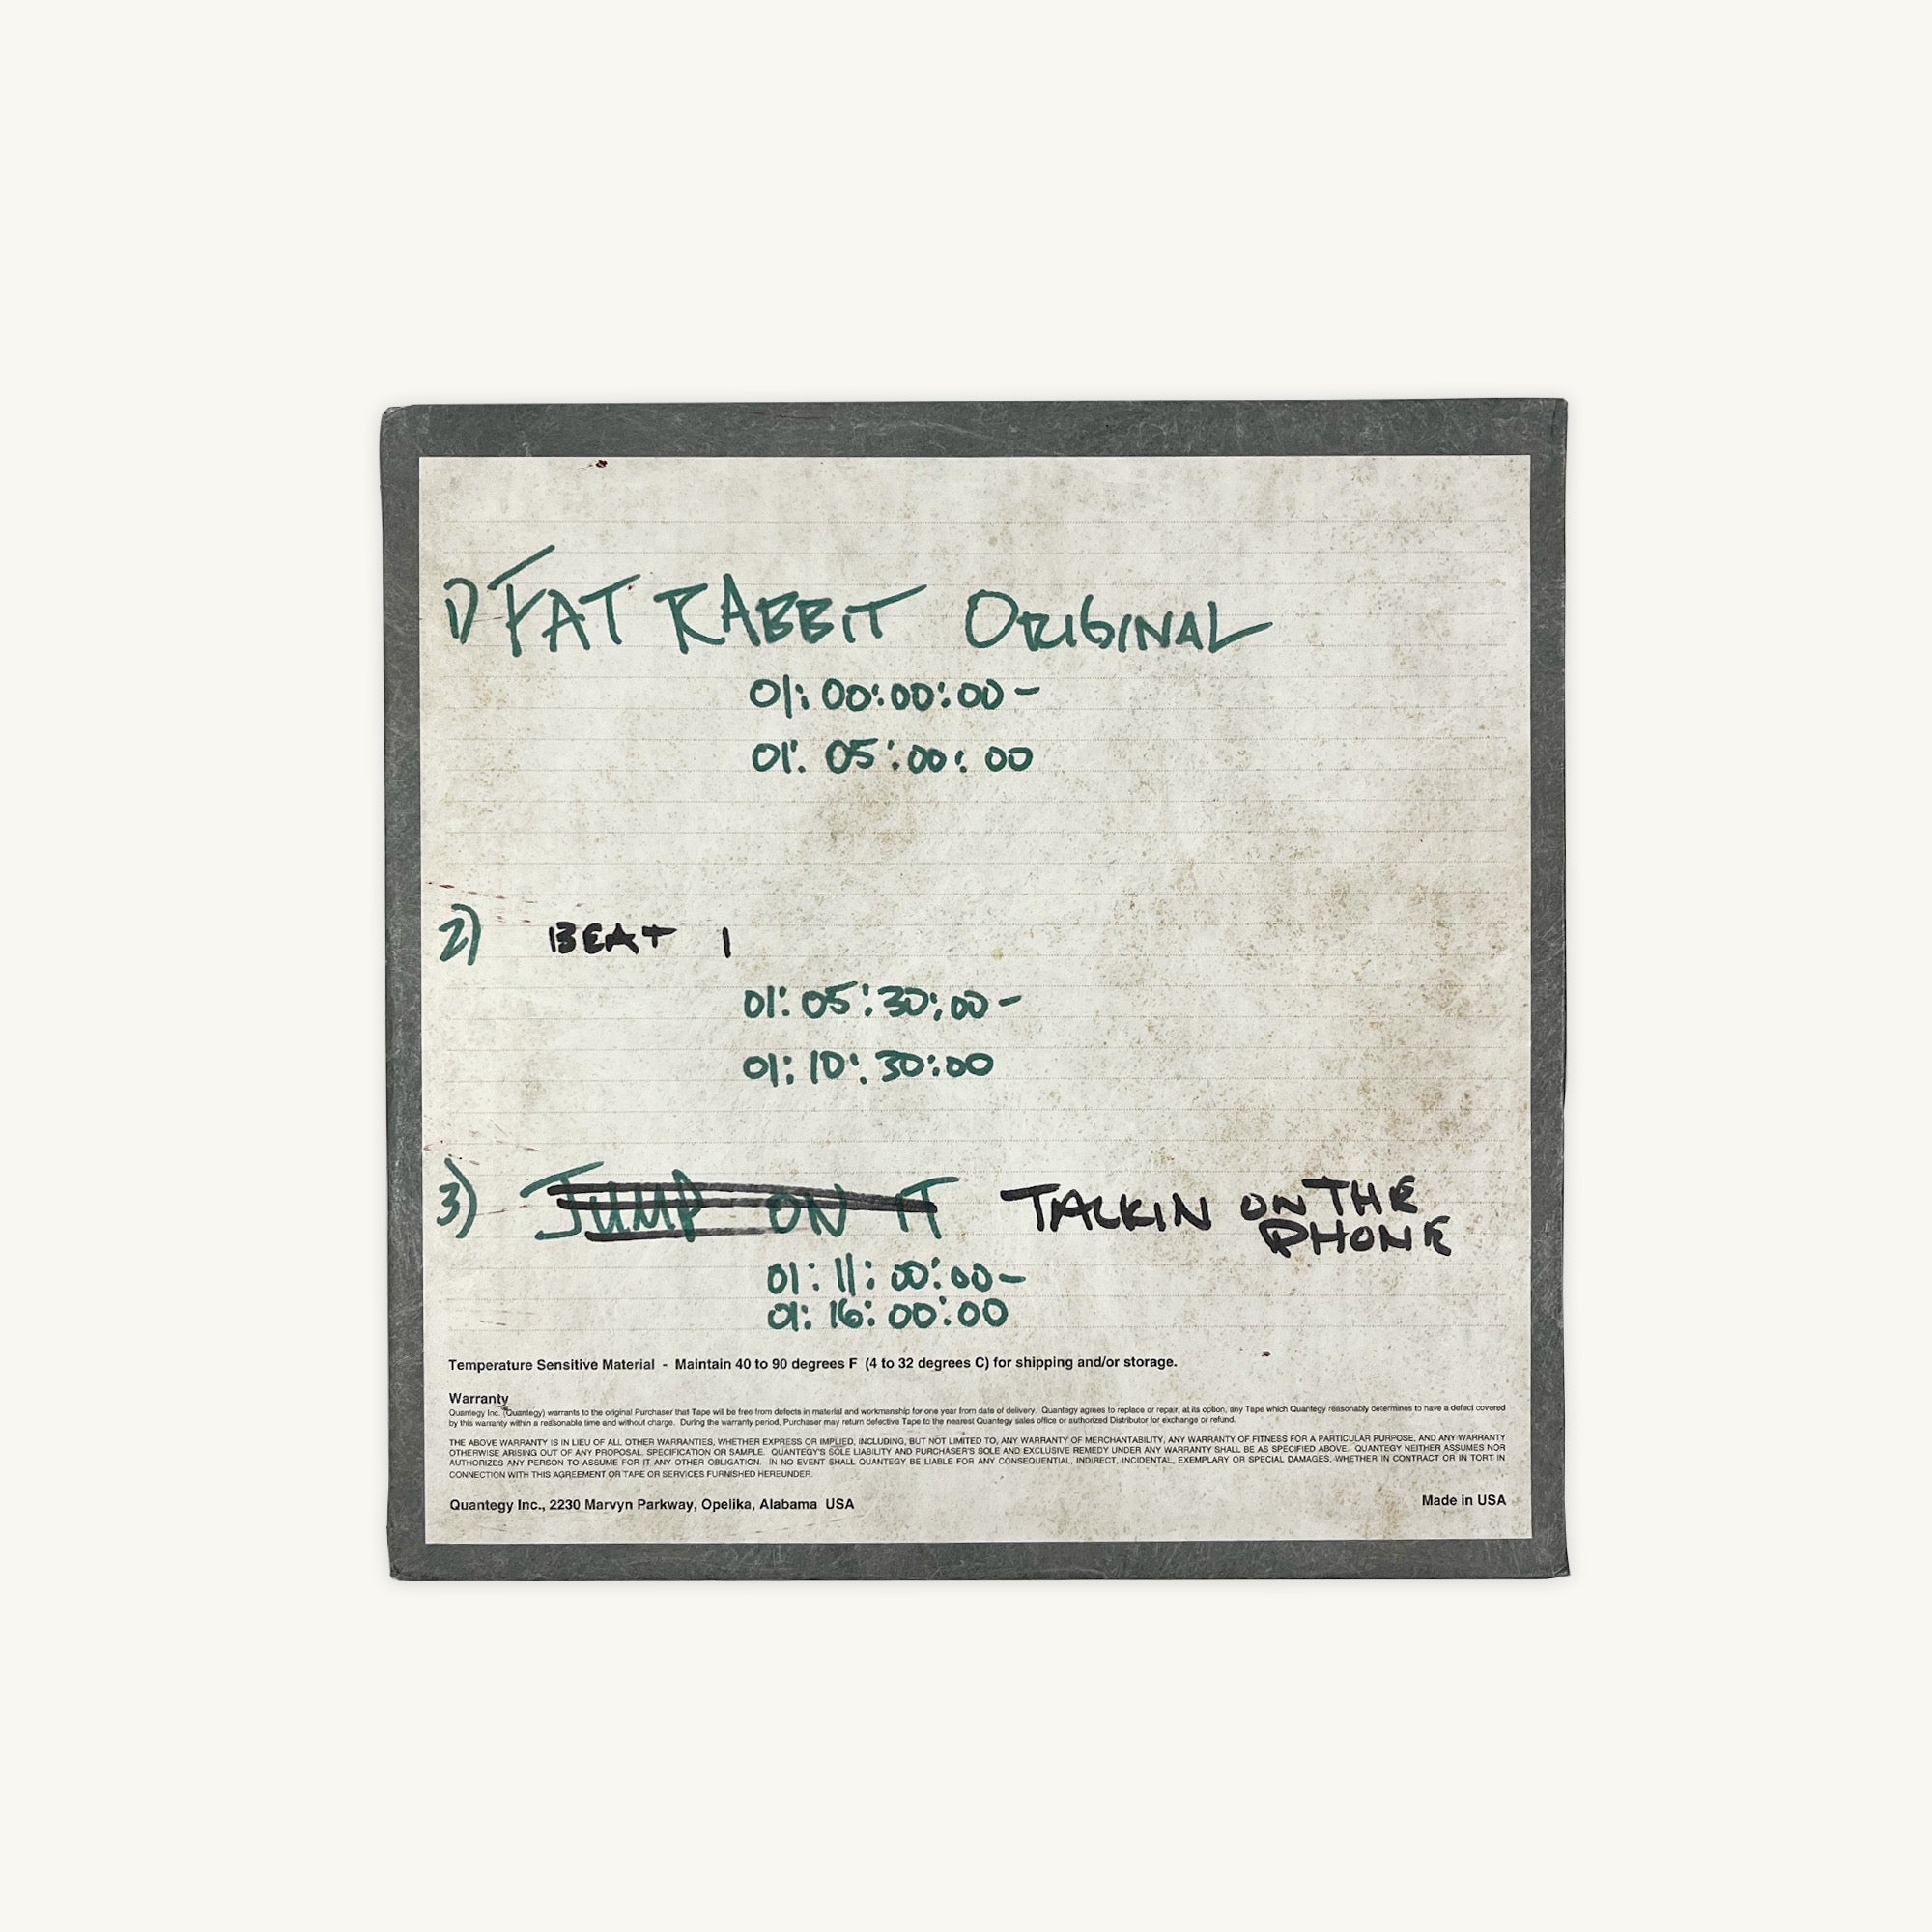 1) FAT RABBIT ORIGINAL
01:00:00:00-
01:05:00:00
2) BEAT 1
01:05:30:00-
01:10:30:00
3) JUMP ON IT TALKIN ON THE
PHONE
01:11:00:00-
01:16:00:00
Temperature Sensitive Material - Maintain 40 to 90 degrees F (4 to 32 degrees C) for shipping and/or storage.
Warranty
Quantegy Inc. (Quantegy) warrants to the original Purchaser that Tape will be free from defects in material and workmanship for one year from date of delivery. Quantegy agrees to replace or repair, at its option, any Tape which Quantegy reasonably determines to have a defect covered
by this warranty within a reasonable time and without charge. During the warranty period, Purchaser may return defective Tape to the nearest Quantegy sales office or authorized Distributor for exchange or refund.
THE ABOVE WARRANTY IS IN LIEU OF ALL OTHER WARRANTIES, WHETHER EXPRESS OR IMPLIED, INCLUDING, BUT NOT LIMITED TO, ANY WARRANTY OF MERCHANTABILITY, ANY WARRANTY OF FITNESS FOR A PARTICULAR PURPOSE, AND ANY WARRANTY
OTHERWISE ARISING OUT OF ANY PROPOSAL, SPECIFICATION OR SAMPLE. QUANTEGY'S SOLE LIABILITY AND PURCHASER'S SOLE AND EXCLUSIVE REMEDY UNDER ANY WARRANTY SHALL BE AS SPECIFIED ABOVE. QUANTEGY NEITHER ASSUMES NOR
AUTHORIZES ANY PERSON TO ASSUME FOR IT ANY OTHER OBLIGATION. IN NO EVENT SHALL QUANTEGY BE LIABLE FOR ANY CONSEQUENTIAL, INDIRECT, INCIDENTAL, EXEMPLARY OR SPECIAL DAMAGES, WHETHER IN CONTRACT OR IN TORT IN
CONNECTION WITH THIS AGREEMENT OR TAPE OR SERVICES FURNISHED HEREUNDER.
Quantegy Inc., 2230 Marvyn Parkway, Opelika, Alabama USA Made in USA